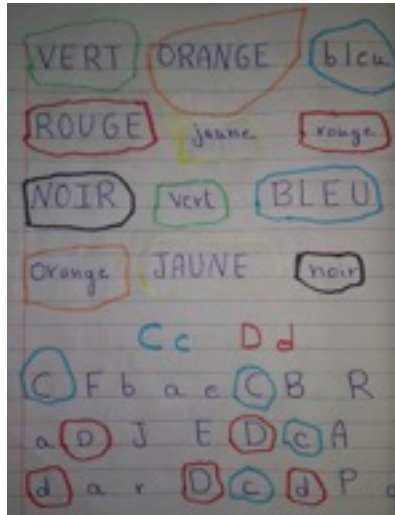 VERT ORANGE bleu
ROUGE jaune rouge
NOIR vert BLEU
Orange JAUNE noir
C c D d
C F b a e C B R
a D J E D c A
d a r D c d P